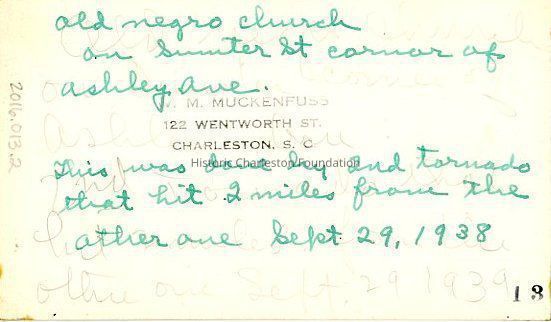 old negro church
on Sumter St cornor of
ashley ave.
. M. MUCKENFUSS
122 WENTWORTH ST.
CHARLESTON, S. C.
Historic Charleston Foundation
This was done by 2nd tornado
that hit 2 miles from the
other one Sept 29, 1938
other one Sept. 29 1939
13
2016.013.2